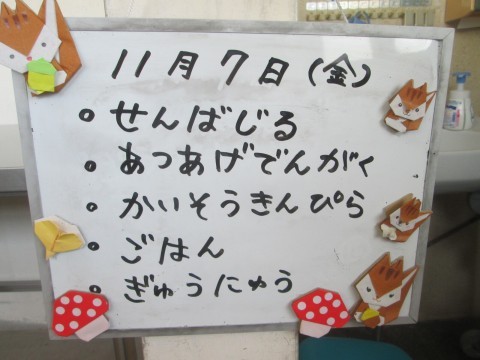 11月7日(金)
• せんばじる
• あつあげでんがく
• かいそうきんぴら
• ごはん
• ぎゅうにゅう